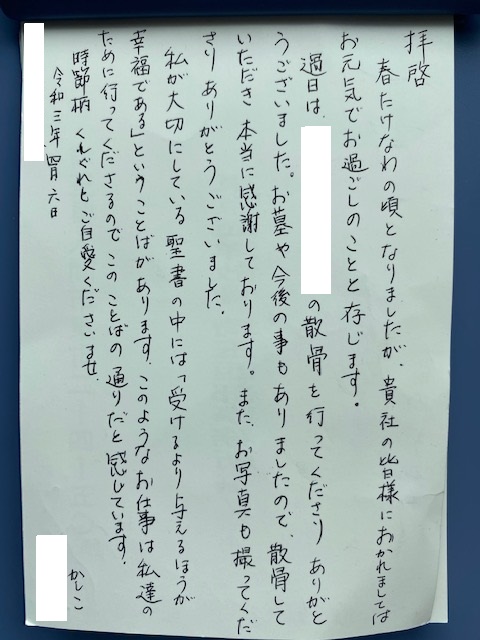 拝啓
春たけなわの頃となりましたが、貴社の皆様におかれましては
お元気でお過ごしのことと存じます。
過日は、
の散骨を行ってくださり ありがと
うございました。お墓や今後の事もありましたので、散骨して
いただき 本当に感謝しております。また、お写真も撮ってくだ
さり ありがとうございました。
私が大切にしている聖書の中には「受けるより与えるほうが
幸福である」ということばがあります。このようなお仕事は私達の
ために行ってくださるので このことばの通りだと感じています。
時節柄 くれぐれもご自愛くださいませ。
かしこ
令和三年 四月六日